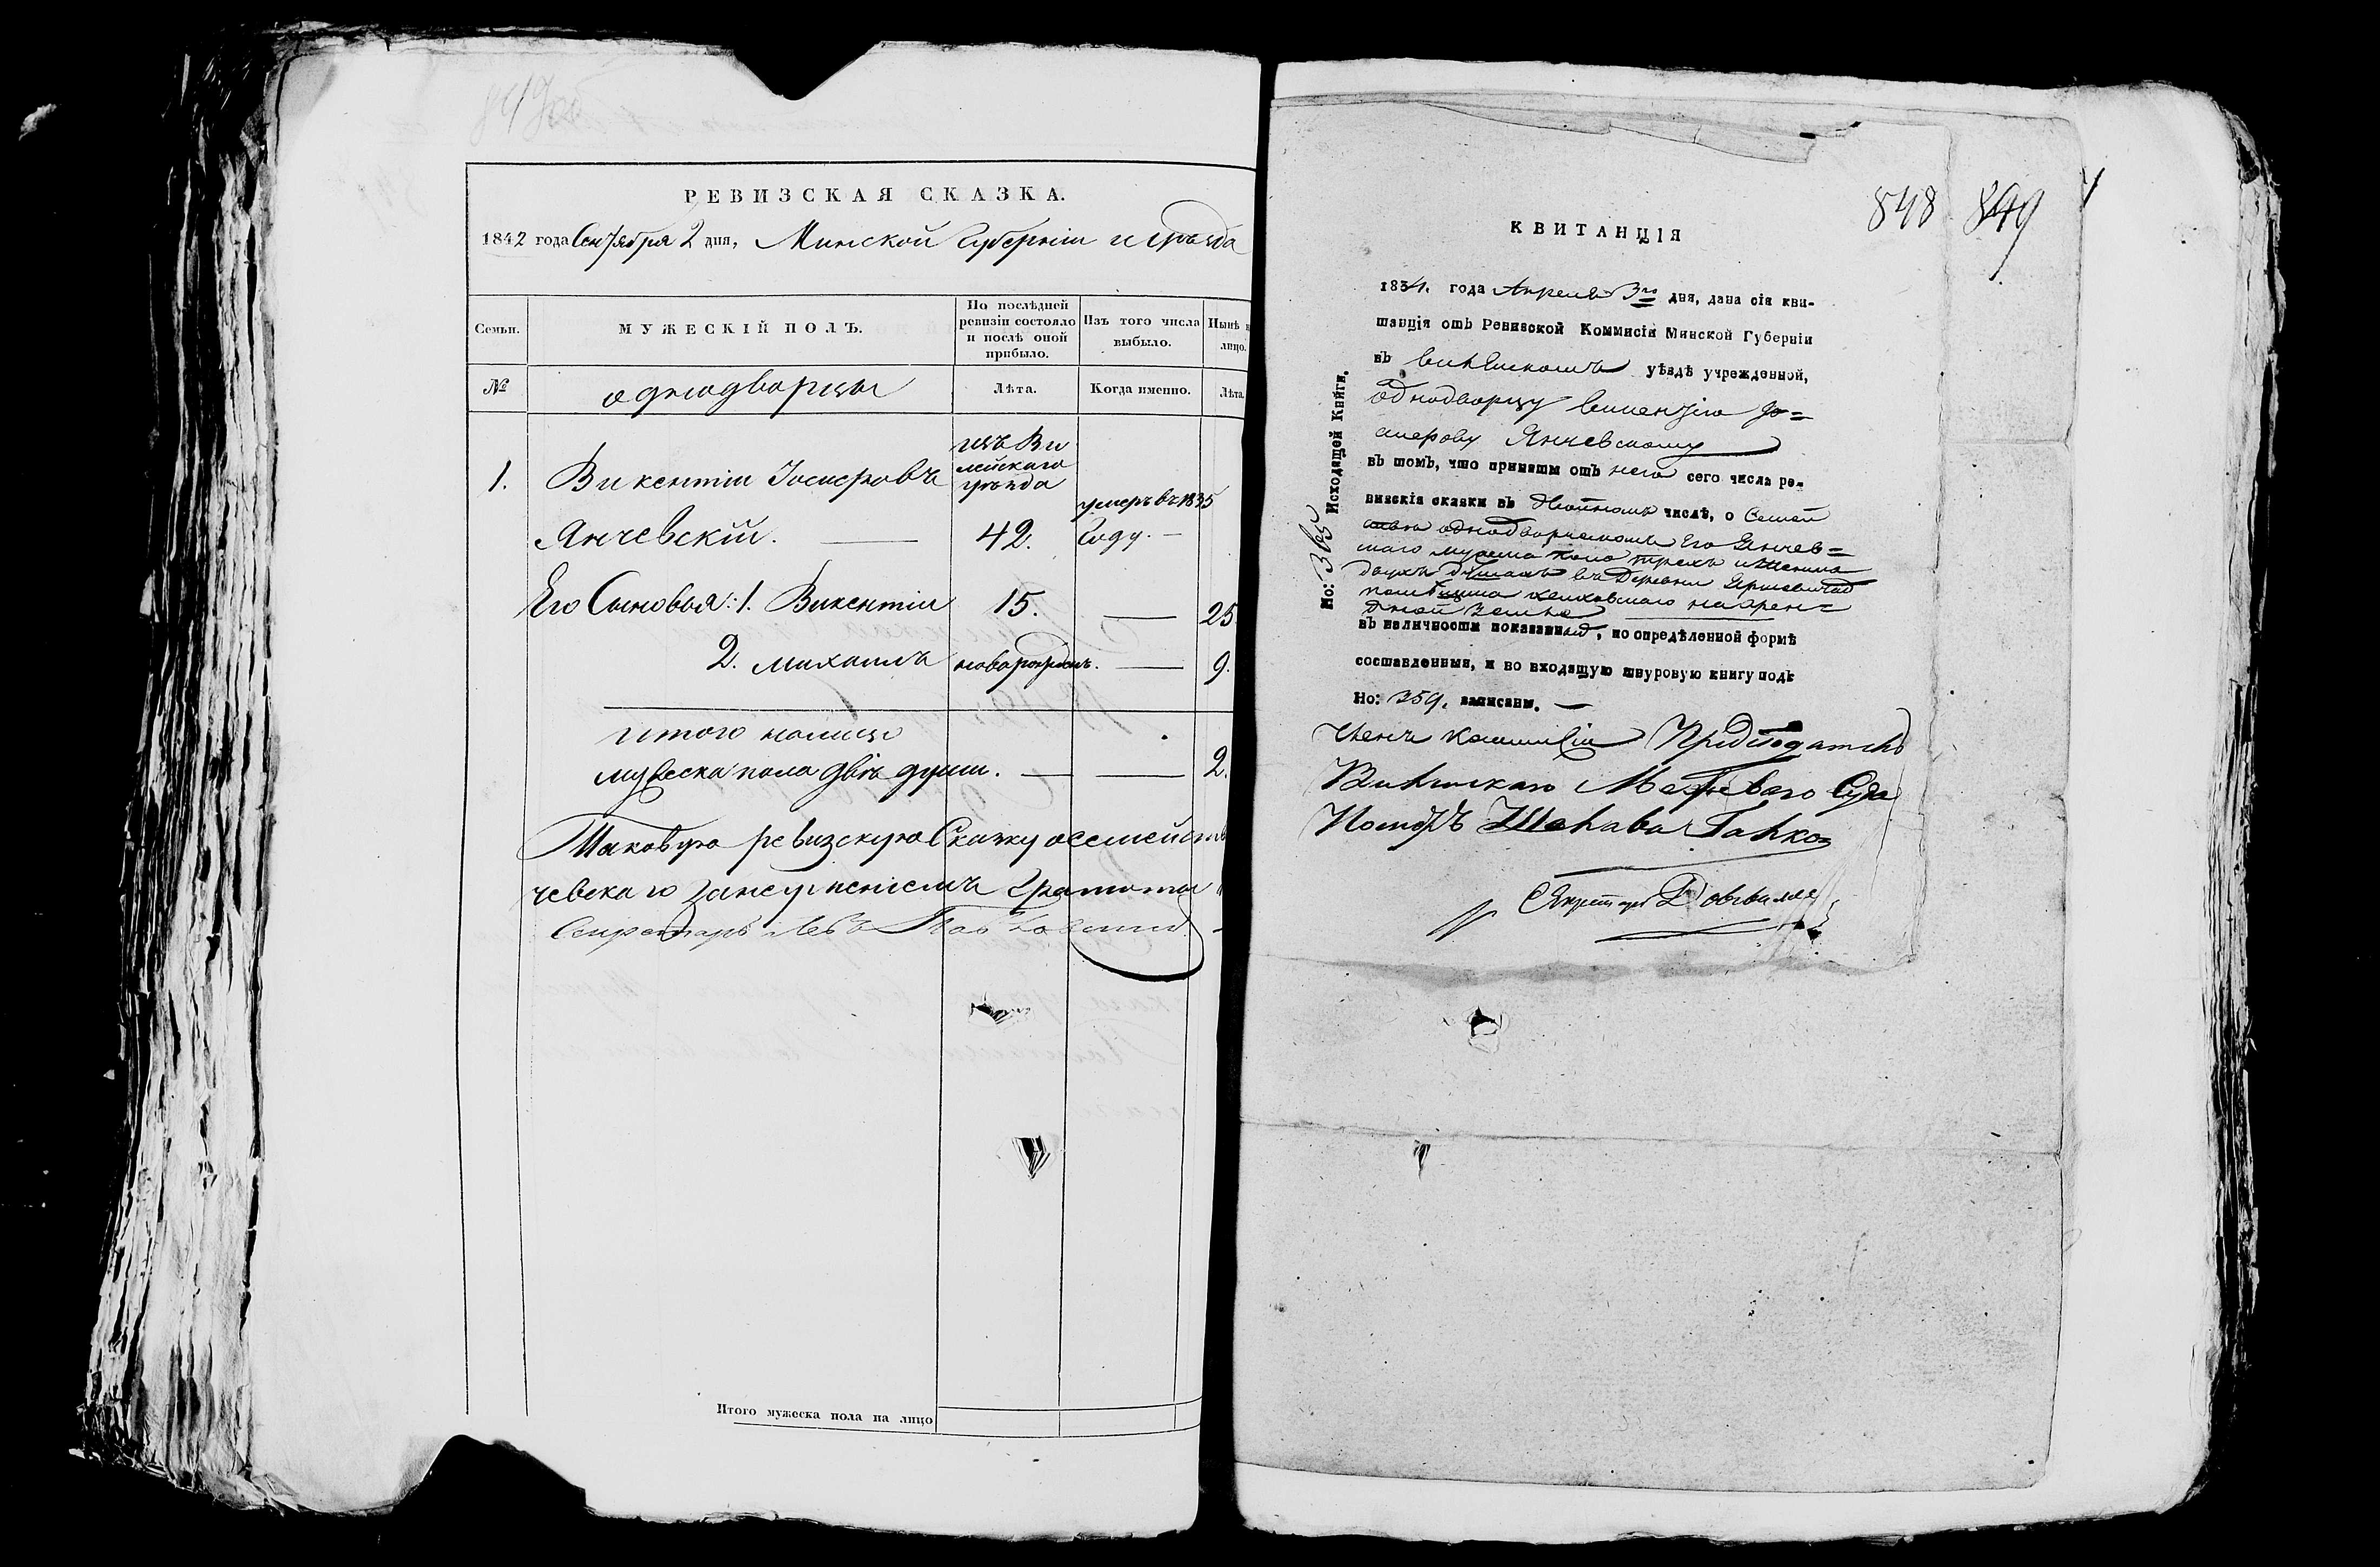 847об
РЕВИЗСКАЯ СКАЗКА.
1842 года Сентября 2 дня, Минской Губерніи и уѣзда
Семьи.
МУЖЕСКІЙ ПОЛЪ.
По послѣдней ревизіи состояло и послѣ оной прибыло.
Изъ того числа выбыло.
Нынѣ н
лицо.
№
однодворцы
Лѣта.
Когда именно.
Лѣта.
1. Викентій Іосифовъ
изъ Ви
лейскаго
уѣзда
умеръ въ 1835
Янчевскій. — 42. Году. —
Его Сыновья: 1. Викентій 15. — 25.
2. михаилъ новорожденъ. — 9.
итого налицо
мужеска пола двѣ души. — — 2.
Таковую ревизскую Сказку о семейств
чевскаго за неумѣніемъ Грамоты
Секретарь Левъ
Итого мужеска пола на лицо
848 849
КВИТАНЦІЯ
1834. года Апреля 3го дня, дана сія кви-
танція отъ Ревизской Коммисіи Минской Губерніи
въ Вилейскомъ уѣздѣ учрежденной,
однодворцу Викентію Іо=
сиферову Янчевскому
въ томъ, что приняты отъ него сего числа ре-
визскія сказки въ двойномъ числѣ, о Семей
ствѣ однодворческомъ Его Янчев=
скаго мужеска пола трехъ и женска
двухъ душахъ въ Деревни
помѣщика на арен=
дной землѣ
въ наличности показанныхъ, по опредѣленной формѣ
составленныя, и во входящую шнуровую книгу подъ
Но: 359. записаны. —
Но: 365 Исходящей Книги.
Членъ Коммисіи Председатель
Вилейскаго Межеваго Суда
Секретарь Довгяло